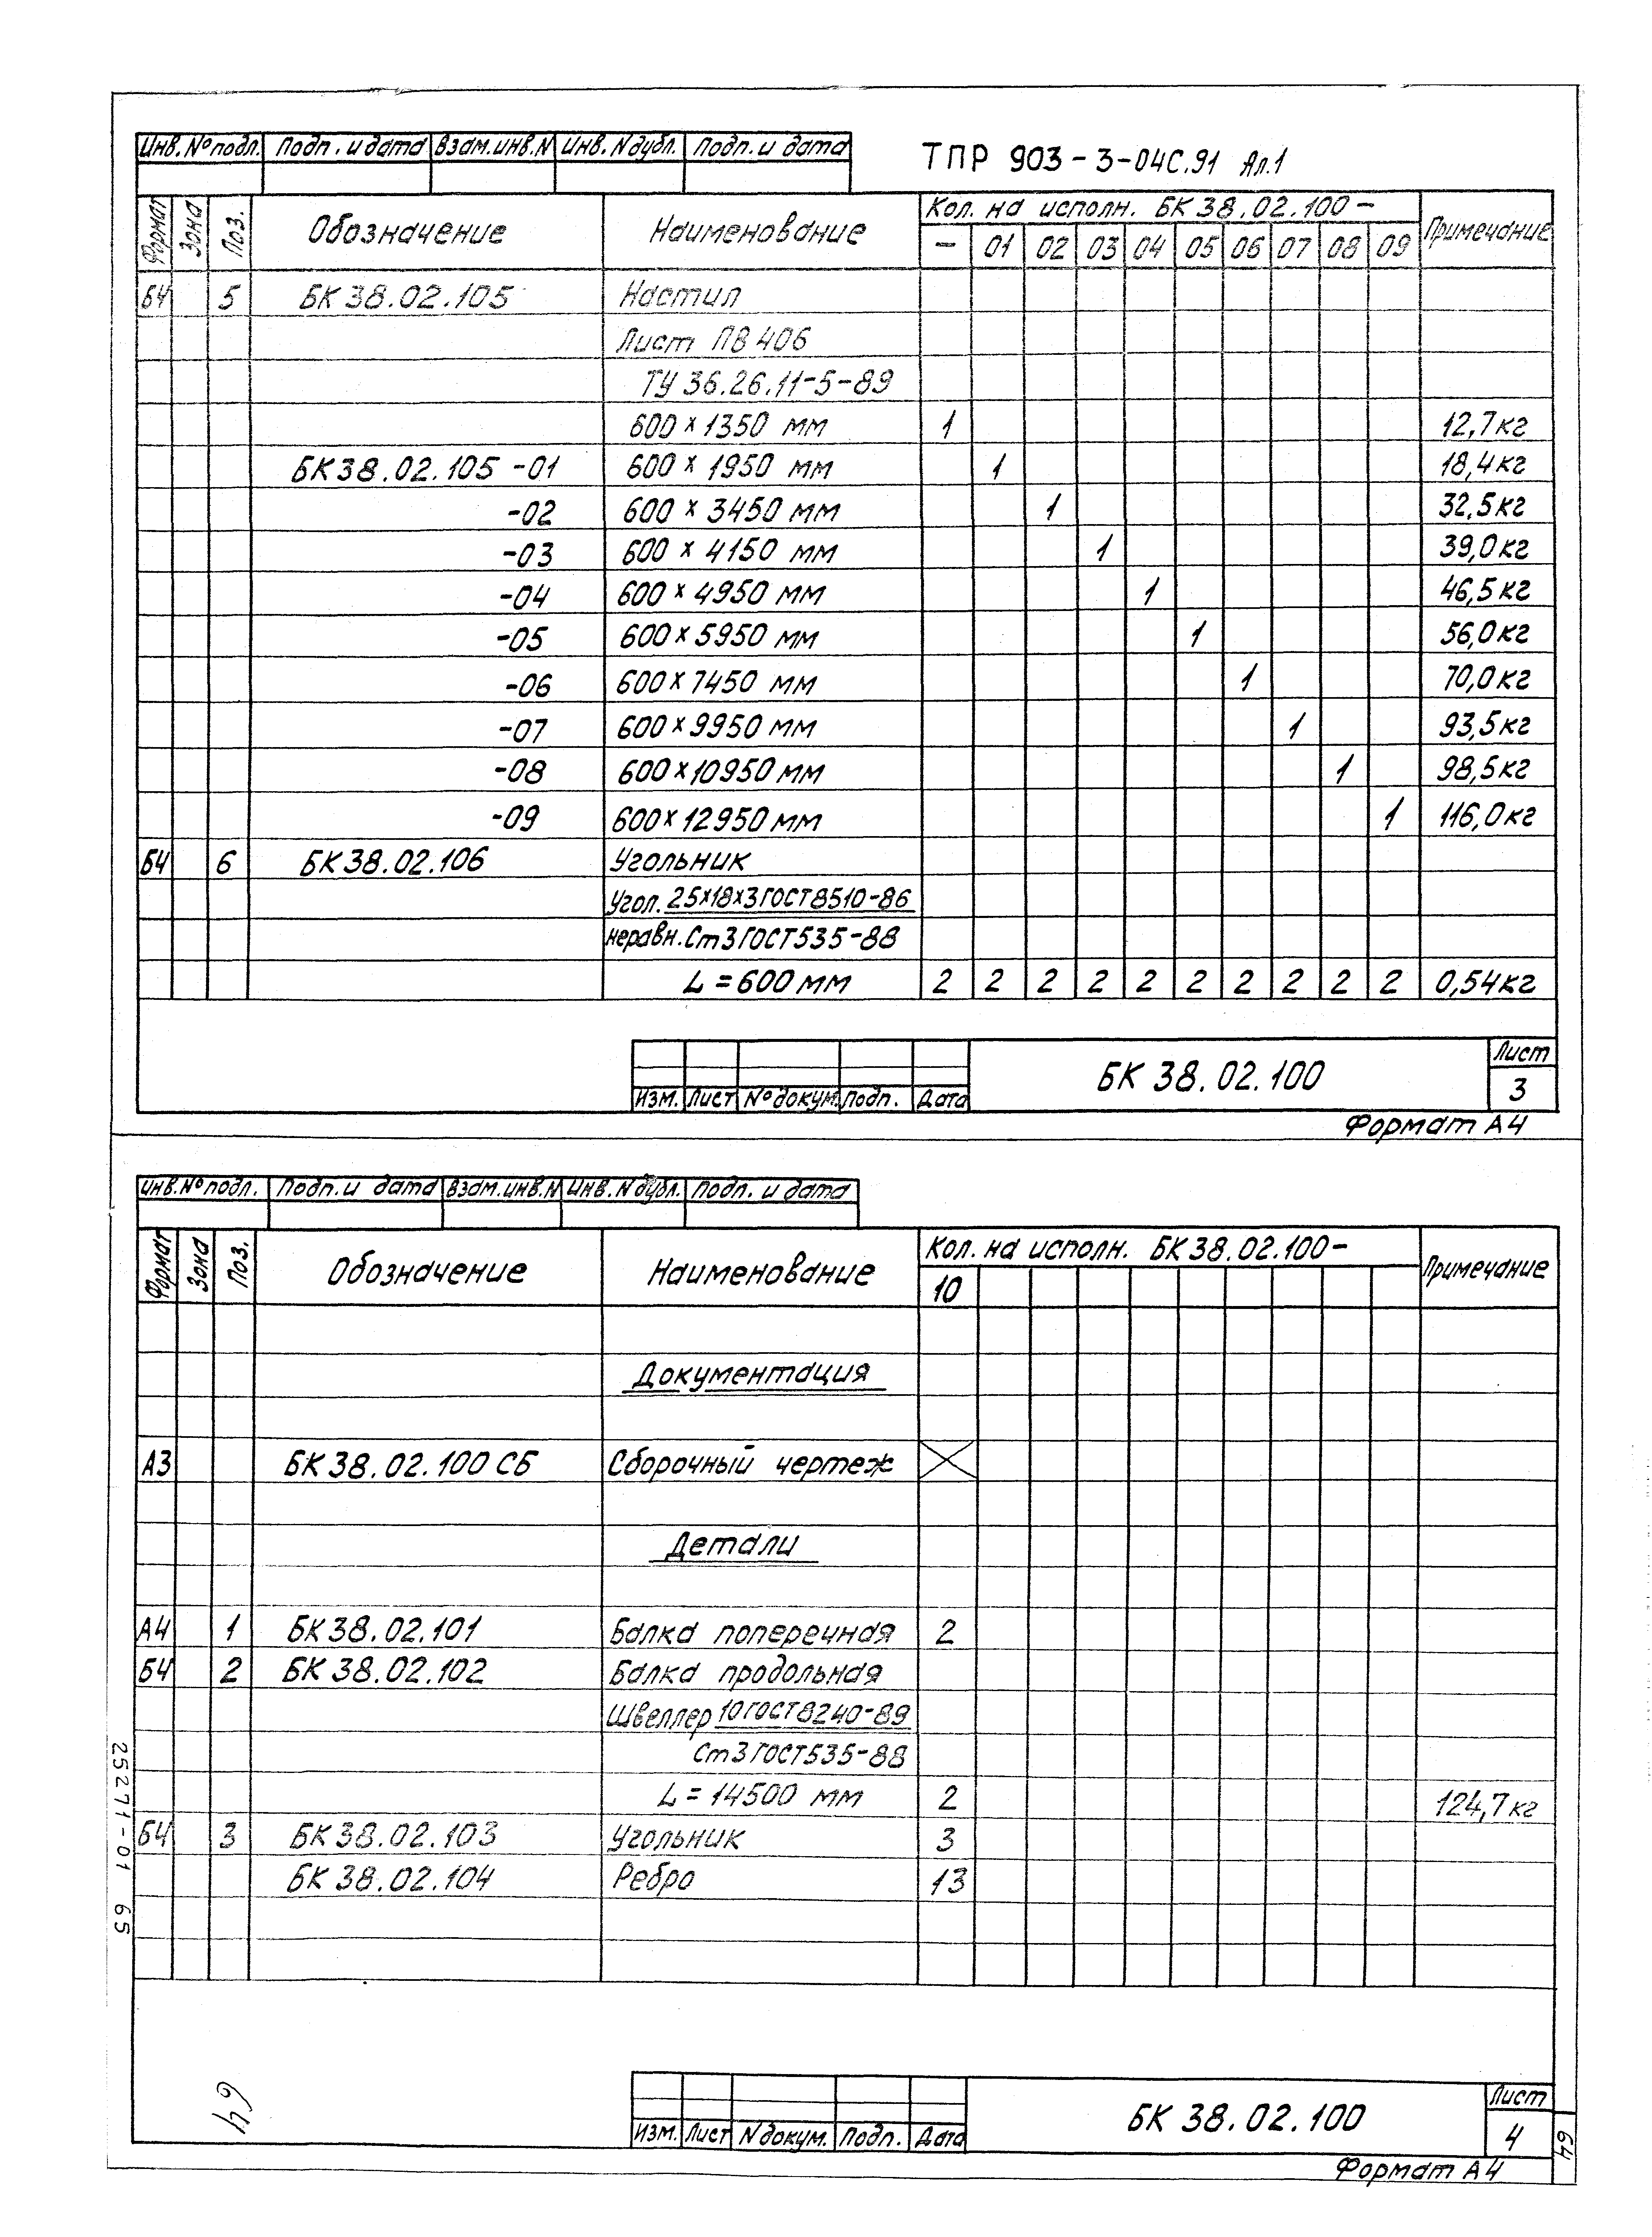 Инв. № подл. Подп. и дата Взам. инв. N Инв. N дубл. Подп. и дата
ТПР 903-3-04С.91 Ал.1
Формат Зона Поз. Обозначение Наименование Кол. на исполн. БК 38.02.100 – Примечание
– 01 02 03 04 05 06 07 08 09
БЧ 5 БК 38.02.105 Настил
Лист ПВ 406
ТУ 36.26.11-5-89
600 х 1350 мм 1 12,7кг
БК 38.02.105 -01 600 х 1950 мм 1 18,4кг
-02 600 х 3450 мм 1 32,5кг
-03 600 х 4150 мм 1 39,0кг
-04 600 х 4950 мм 1 46,5кг
-05 600 х 5950 мм 1 56,0кг
-06 600 х 7450 мм 1 70,0кг
-07 600 х 9950 мм 1 93,5кг
-08 600 х 10950 мм 1 98,5кг
-09 600 х 12950 мм 1 116,0кг
БЧ 6 БК 38.02.106 Угольник
Угол. 25х18х3 ГОСТ 8510-86
неравн. Ст3 ГОСТ 535-88
L = 600 мм 2 2 2 2 2 2 2 2 2 2 0,54кг
Изм. Лист № докум. Подп. Дата
БК 38.02.100
Лист
3
Формат А4
Инв. № подл. Подп. и дата Взам. инв. N Инв. N дубл. Подп. и дата
Формат Зона Поз. Обозначение Наименование Кол. на исполн. БК 38.02.100 – Примечание
10
Документация
А3 БК 38.02.100 СБ Сборочный чертеж
Детали
А4 1 БК 38.02.101 Балка поперечная 2
БЧ 2 БК 38.02.102 Балка продольная
Швеллер 10 ГОСТ 8240-89
Ст3 ГОСТ 535-88
L = 14500 мм 2 124,7кг
БЧ 3 БК 38.02.103 Угольник 3
БК 38.02.104 Ребро 13
25271-01 65
64
Изм. Лист N докум. Подп. Дата
БК 38.02.100
Лист
4
64
Формат А4